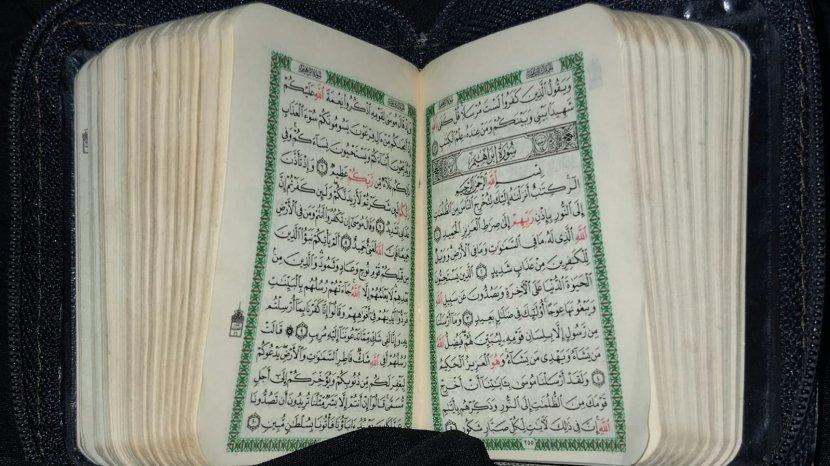 وَيَقُولُ الَّذِينَ كَفَرُوا لَسْتَ مُرْسَلًا قُلْ كَفَىٰ بِاللَّهِ
شَهِيدًا بَيْنِي وَبَيْنَكُمْ وَمَنْ عِندَهُ عِلْمُ الْكِتَٰبِ ٤٣
سُورَةُ إِبْرَاهِيمَ
بِسْمِ اللَّهِ الرَّحْمَٰنِ الرَّحِيمِ
الٓر كِتَٰبٌ أَنزَلْنَٰهُ إِلَيْكَ لِتُخْرِجَ النَّاسَ مِنَ الظُّلُمَٰتِ
إِلَى النُّورِ بِإِذْنِ رَبِّهِمْ إِلَىٰ صِرَٰطِ الْعَزِيزِ الْحَمِيدِ ١
اللَّهِ الَّذِي لَهُ مَا فِي السَّمَٰوَٰتِ وَمَا فِي الْأَرْضِ وَوَيْلٌ
لِّلْكَٰفِرِينَ مِنْ عَذَابٍ شَدِيدٍ ٢ الَّذِينَ يَسْتَحِبُّونَ
الْحَيَوٰةَ الدُّنْيَا عَلَى الْآخِرَةِ وَيَصُدُّونَ عَن سَبِيلِ اللَّهِ
وَيَبْغُونَهَا عِوَجًا أُولَٰئِكَ فِي ضَلَٰلٍ بَعِيدٍ ٣ وَمَا أَرْسَلْنَا
مِن رَّسُولٍ إِلَّا بِلِسَانِ قَوْمِهِ لِيُبَيِّنَ لَهُمْ فَيُضِلُّ اللَّهُ
مَن يَشَاءُ وَيَهْدِي مَن يَشَاءُ وَهُوَ الْعَزِيزُ الْحَكِيمُ
٤ وَلَقَدْ أَرْسَلْنَا مُوسَىٰ بِـَٔايَٰتِنَا أَنْ أَخْرِجْ
قَوْمَكَ مِنَ الظُّلُمَٰتِ إِلَى النُّورِ وَذَكِّرْهُم بِأَيَّىٰمِ
اللَّهِ إِنَّ فِي ذَٰلِكَ لَءَايَٰتٍ لِّكُلِّ صَبَّارٍ شَكُورٍ ٥
٢٥٥
وَإِذْ قَالَ مُوسَىٰ لِقَوْمِهِ اذْكُرُوا نِعْمَةَ اللَّهِ عَلَيْكُمْ
إِذْ أَنجَىٰكُم مِّنْ ءَالِ فِرْعَوْنَ يَسُومُونَكُمْ سُوءَ الْعَذَابِ
وَيُذَبِّحُونَ أَبْنَاءَكُمْ وَيَسْتَحْيُونَ نِسَاءَكُمْ وَفِي
ذَٰلِكُم بَلَاءٌ مِّن رَّبِّكُمْ عَظِيمٌ ٦ وَإِذْ تَأَذَّنَ
رَبُّكُمْ لَئِن شَكَرْتُمْ لَأَزِيدَنَّكُمْ وَلَئِن كَفَرْتُمْ إِنَّ
عَذَابِي لَشَدِيدٌ ٧ وَقَالَ مُوسَىٰ إِن تَكْفُرُوا أَنتُمْ وَمَن فِي الْأَرْضِ
جَمِيعًا فَإِنَّ اللَّهَ لَغَنِيٌّ حَمِيدٌ ٨ أَلَمْ يَأْتِكُمْ نَبَؤُا الَّذِينَ
مِن قَبْلِكُمْ قَوْمِ نُوحٍ وَعَادٍ وَثَمُودَ وَالَّذِينَ مِن
بَعْدِهِمْ لَا يَعْلَمُهُمْ إِلَّا اللَّهُ جَاءَتْهُمْ رُسُلُهُم بِالْبَيِّنَٰتِ
فَرَدُّوا أَيْدِيَهُمْ فِي أَفْوَٰهِهِمْ وَقَالُوا إِنَّا كَفَرْنَا بِمَا أُرْسِلْتُم
بِهِ وَإِنَّا لَفِي شَكٍّ مِّمَّا تَدْعُونَنَا إِلَيْهِ مُرِيبٍ ٩ قَالَتْ
رُسُلُهُمْ أَفِي اللَّهِ شَكٌّ فَاطِرِ السَّمَٰوَٰتِ وَالْأَرْضِ يَدْعُوكُمْ
لِيَغْفِرَ لَكُم مِّن ذُنُوبِكُمْ وَيُؤَخِّرَكُمْ إِلَىٰ أَجَلٍ
مُّسَمًّى قَالُوا إِنْ أَنتُمْ إِلَّا بَشَرٌ مِّثْلُنَا تُرِيدُونَ أَن تَصُدُّونَا
عَمَّا كَانَ يَعْبُدُ ءَابَاؤُنَا فَأْتُونَا بِسُلْطَٰنٍ مُّبِينٍ ١٠